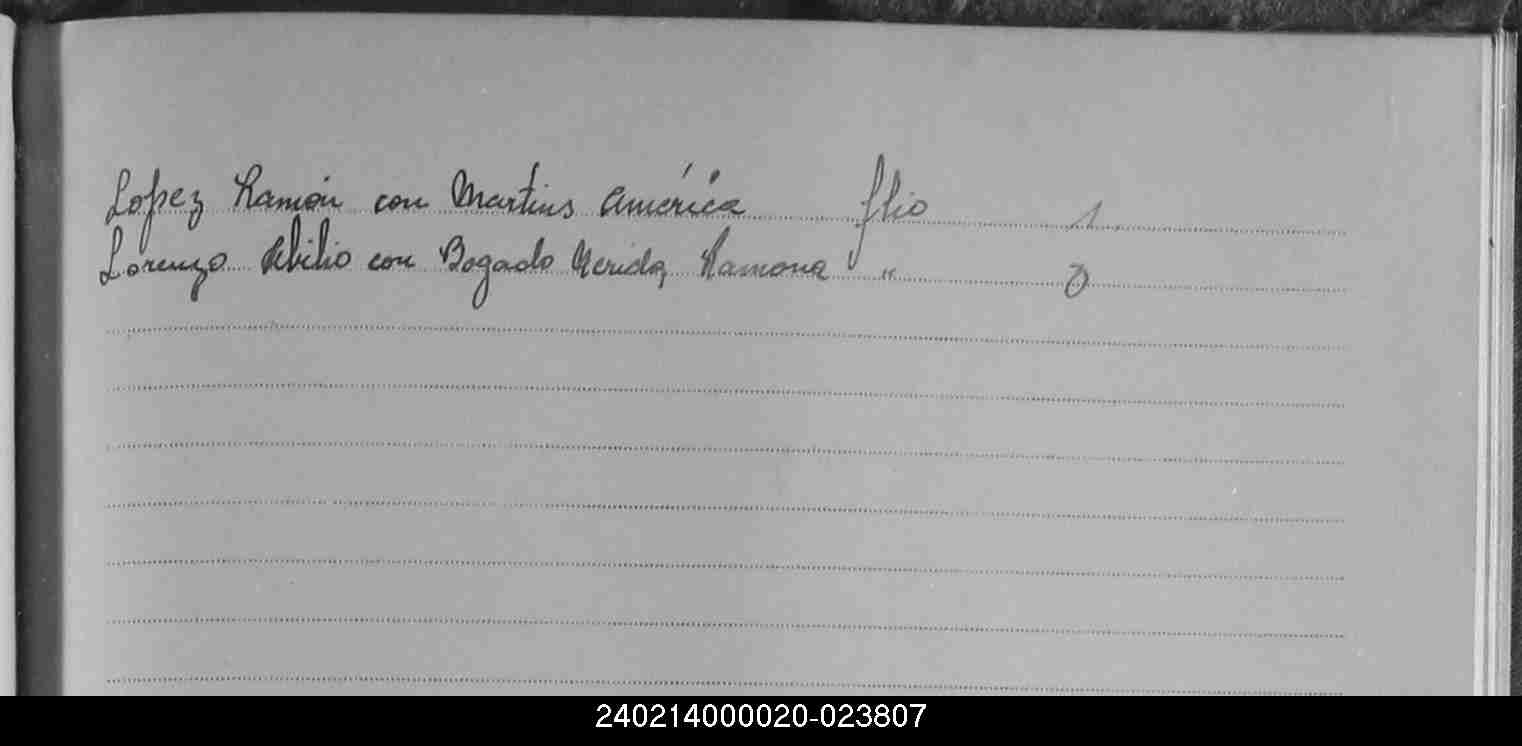 Lopez Ramón con Martins América flio 1
Lorenzo Abilio con Bogado Nerida, Ramona "
240214000020-023807